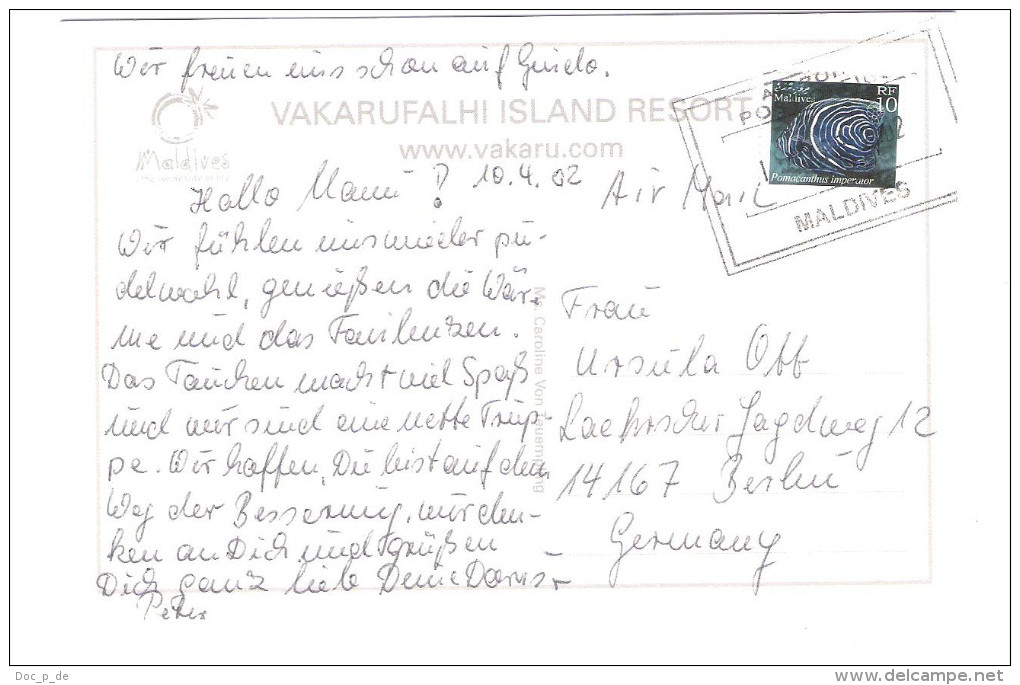 Wir freuen uns schon auf Guido.
VAKARUFALHI ISLAND RESORT
www.vakaru.com
Maldives
Hallo Mami! 10.4.02
Wir fühlen uns wieder pu-
delwohl, genießen die Wär-
me und das Faulenzen.
Das Tauchen macht viel Spaß
und wir sind eine nette Trup-
pe. Wir hoffen, Du bist auf dem
Weg der Besserung, wir den-
ken an Dich und grüßen
Dich ganz lieb Deine Doris +
Peter
Ms. Caroline Von
Air Mail
Maldives
RF
10
Pomacanthus imperator
MALDIVES
Frau
Ursula Ott
Jagdweg 12
14167 Berlin
Germany
Doc_p_de
www.delcampe.net